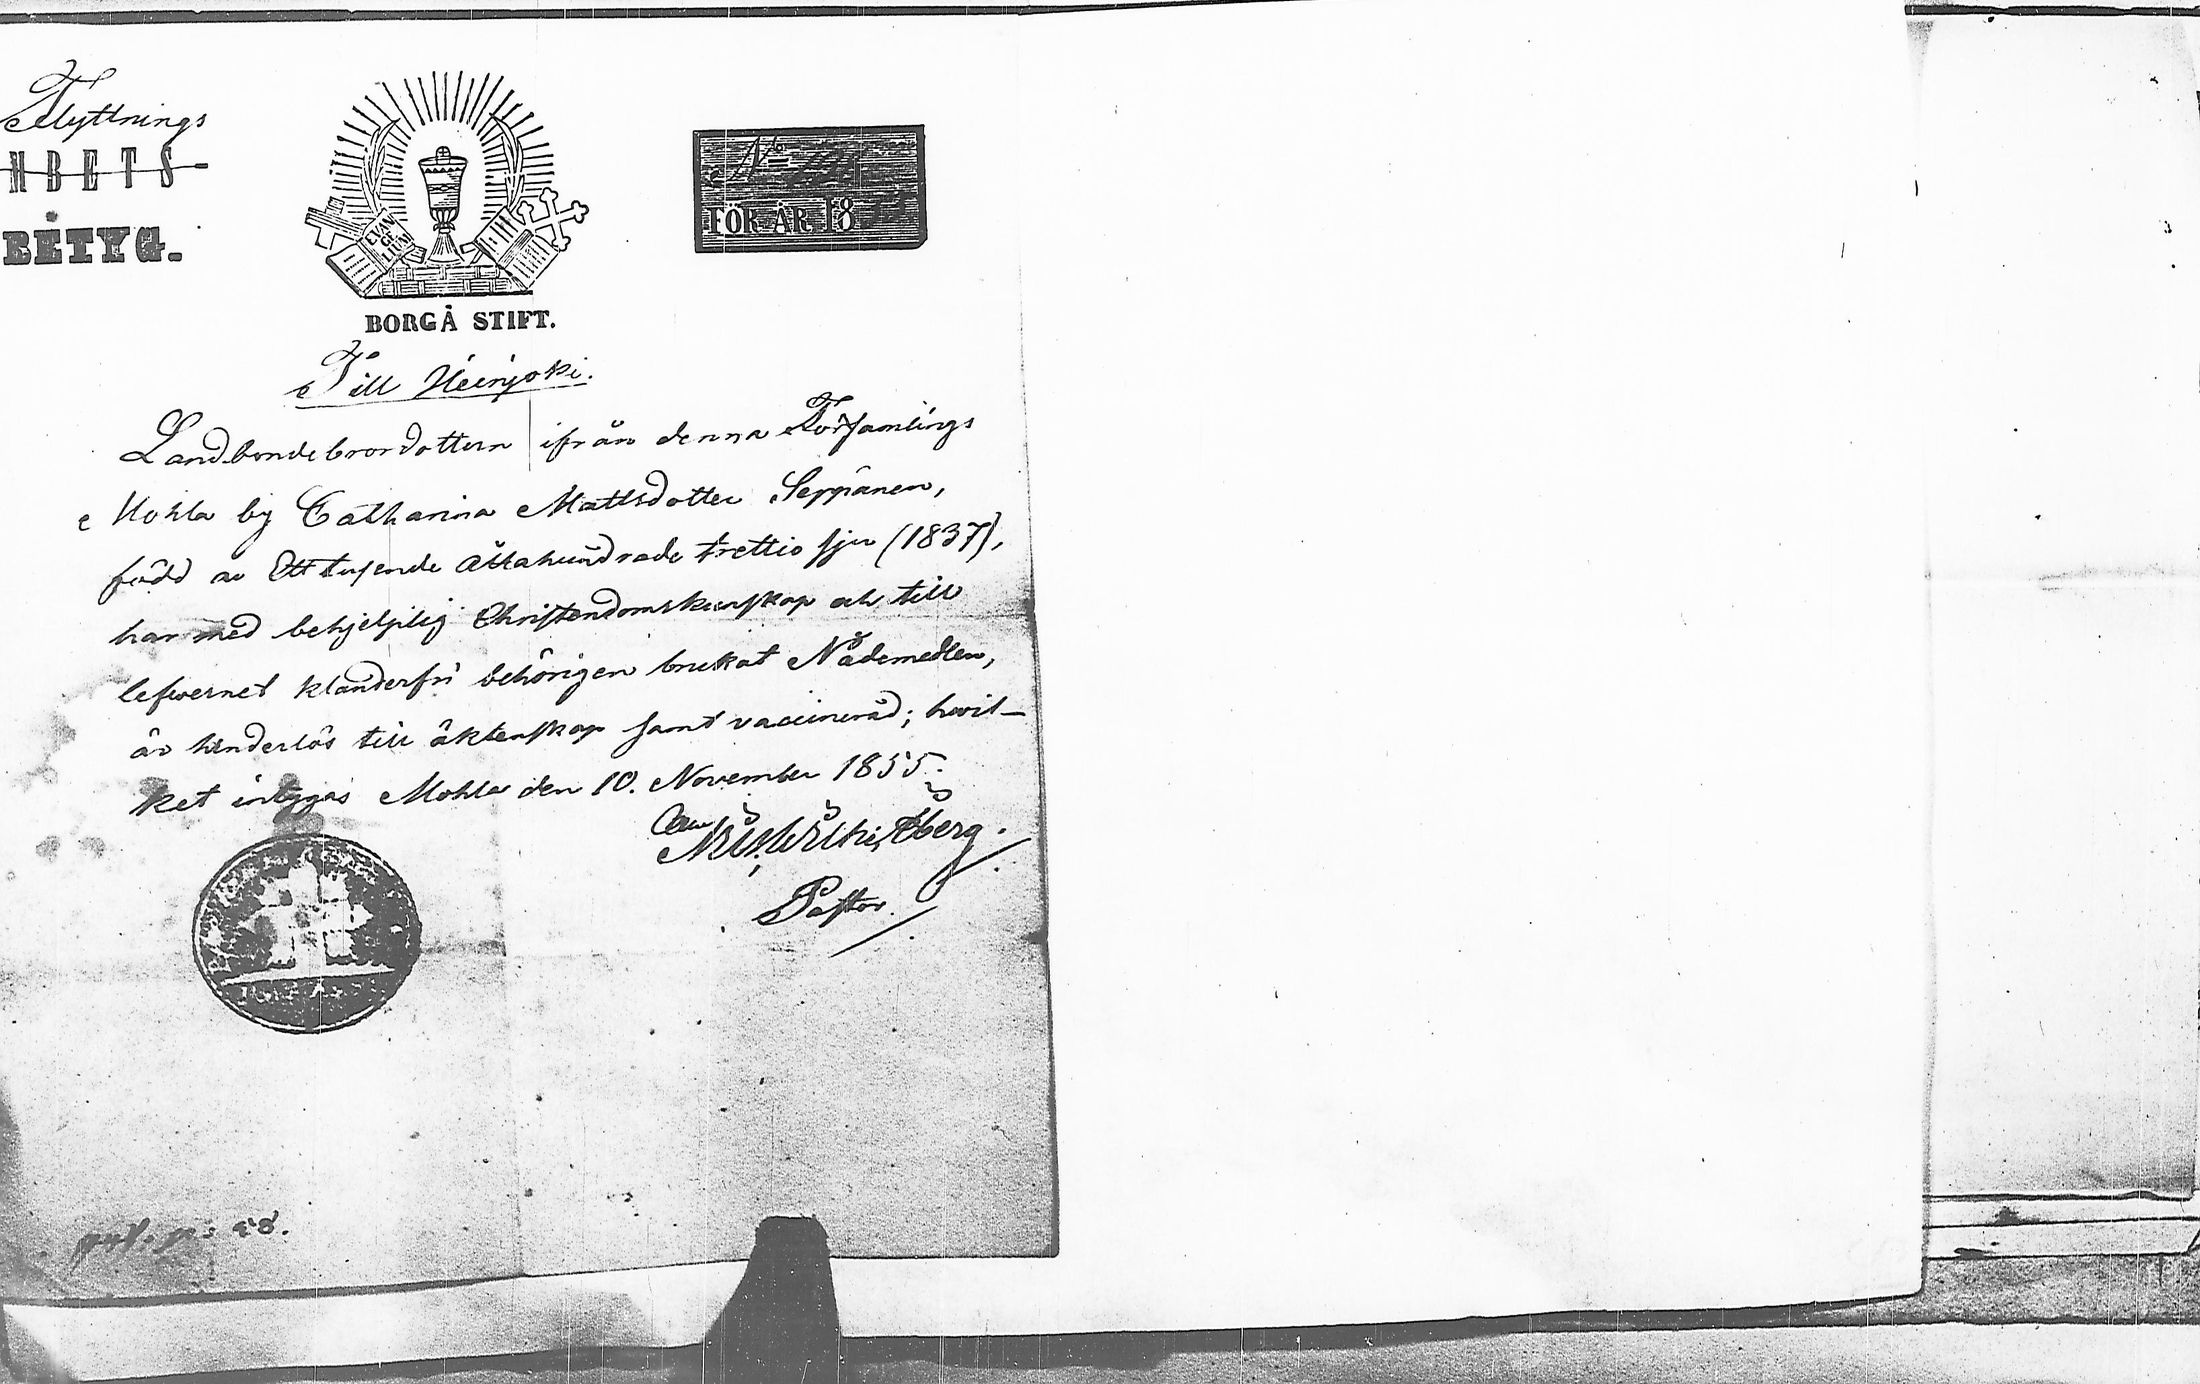 Flyttnings
HBETS-
BETYG.
EVAN
GE
LIUM
No
FÖR ÅR 18
BORGÅ STIFT.
Till Heinjoki.
Landbondebrordottern ifrån denna Församlings
Mohla by Catharina Mattsdotter Seppänen,
född av Ett tusende åttahundrade trettio sju (1837),
har med behjelplig Christendomskunskap och till
lefwernet klanderfri behörigen brukat Nådemedlen,
är hinderlös till äktenskap samt vaccinerad; hvil-
ket intygas Mohla den 10. November 1855.
Pastor.
p: 48.